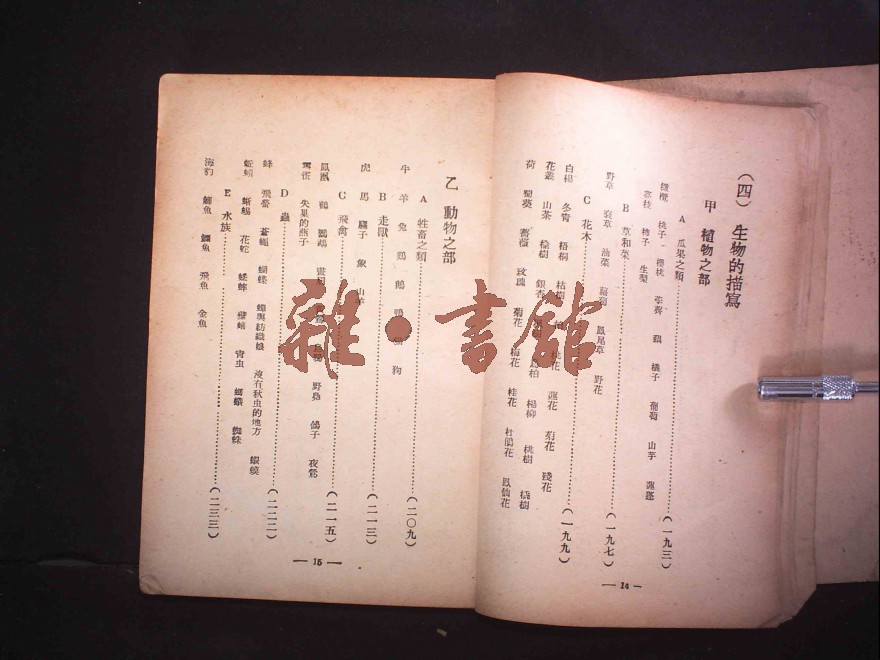 (四) 生物的描寫
甲 植物之部
A 瓜果之類……(一九三)
橄欖 桃子 櫻桃 荸薺 藕 橘子 葡萄 山芋 蓮蓬
荔枝 柿子 生梨
B 草和菜……(一九七)
野草 衰草 油菜 蘿蔔 鳳尾草 野花
C 花木……(一九九)
白楊 冬青 梧桐 枯樹 桃花 蓮花 菊花 殘花
花叢 山茶 檜樹 銀杏 柏 楊柳 桃樹 橘樹
荷 蜀葵 薔薇 玫瑰 菊花 梅花 桂花 杜鵑花 鳳仙花
— 14 —
乙 動物之部
A 牲畜之類……(二〇九)
牛 羊 兔 鷄 鵝 鴨 狗
B 走獸……(二一三)
虎 馬 騾子 象 山羊
C 飛禽……(二一五)
鳳凰 鶴 鸚鵡 野鳥 鴿子 夜鶯
黃雀 失巢的燕子
D 蟲……(二二二)
蜂 飛螢 蒼蠅 蝴蝶 蟬與紡織娘 沒有秋虫的地方 蝦蟆
蚯蚓 蜥蜴 花蛇 蜉蝣 青虫 螂蟻 蜘蛛
E 水族……(二三三)
海豹 鯽魚 鱷魚 飛魚 金魚
— 15 —
雜·書館